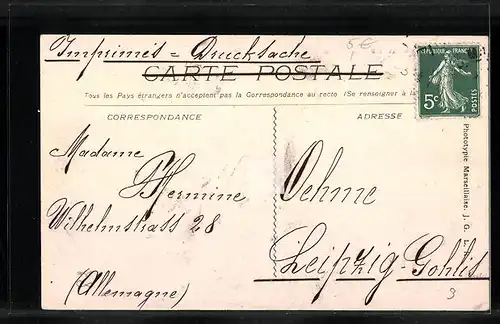 Imprimés = Drucksache
5€
CARTE POSTALE
Tous les Pays étrangers n'acceptent pas la Correspondance au recto (Se renseigner à la
CORRESPONDANCE
ADRESSE
RÉPUBLIQUE FRANÇAISE
5c
POSTES
Madame
Hermine Oehme
Wilhelmstrass 28
Leipzig-Gohlis
(Allemagne)
3
Phototypie Marseillaise, J. G. L.